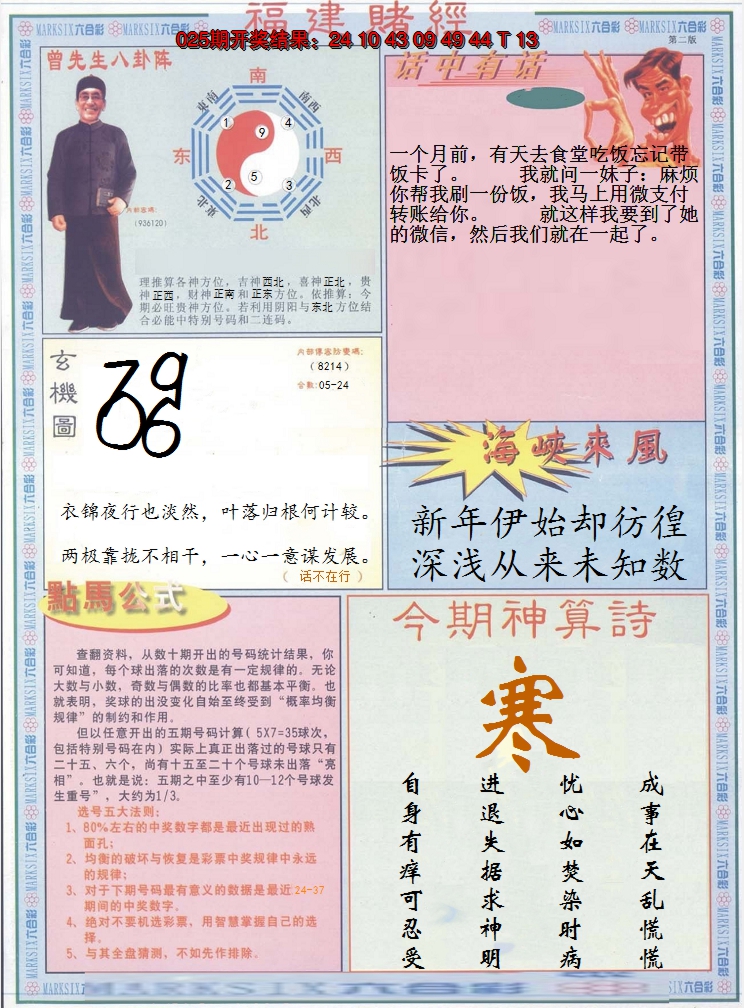 福建賭經
025期开奖结果: 24 10 43 09 49 44 T 13
MARKSIX六合彩 MARKSIX六合彩 MARKSIX六合彩 MARKSIX六合彩
第二版
曾先生八卦阵
南
東南
南西
1
9
4
东
西
5
2
3
東北
北西
北
內部密碼:
(936120)
理推算各神方位，吉神西北，喜神正北，贵
神正西，财神正南和正东方位。依推算：今
期必旺贵神方位。若利用阴阳与东北方位结
合必能中特别号码和二连码。
话中有话
一个月前，有天去食堂吃饭忘记带
饭卡了。 我就问一妹子：麻烦
你帮我刷一份饭，我马上用微支付
转账给你。 就这样我要到了她
的微信，然后我们就在一起了。
玄機圖
(8214)
合数:05-24
衣锦夜行也淡然，叶落归根何计较。
两极靠拢不相干，一心一意谋发展。
（ 话不在行 ）
海峽來風
新年伊始却彷徨
深浅从来未知数
點馬公式
查翻资料，从数十期开出的号码统计结果，你
可知道，每个球出落的次数是有一定规律的。无论
大数与小数，奇数与偶数的比率也都基本平衡。也
就表明，奖球的出没变化自始至终受到“概率均衡
规律”的制约和作用。
但以任意开出的五期号码计算( 5X7=35球次，
包括特别号码在内）实际上真正出落过的号球只有
二十五、六个，尚有十五至二十个号球未出落“亮
相”。也就是说：五期之中至少有10—12个号球发
生重号”，大约为1/3。
选号五大法则：
1、80%左右的中奖数字都是最近出现过的熟
面孔；
2、均衡的破坏与恢复是彩票中奖规律中永远
的规律；
3、对于下期号码最有意义的数据是最近24-37
期间的中奖数字。
4、绝对不要机选彩票，用智慧掌握自己的选
择。
5、与其全盘猜测，不如先作排除。
今期神算詩
寒
成事在天乱慌慌
忧心如焚染时病
进退失据求神明
自身有痒可忍受